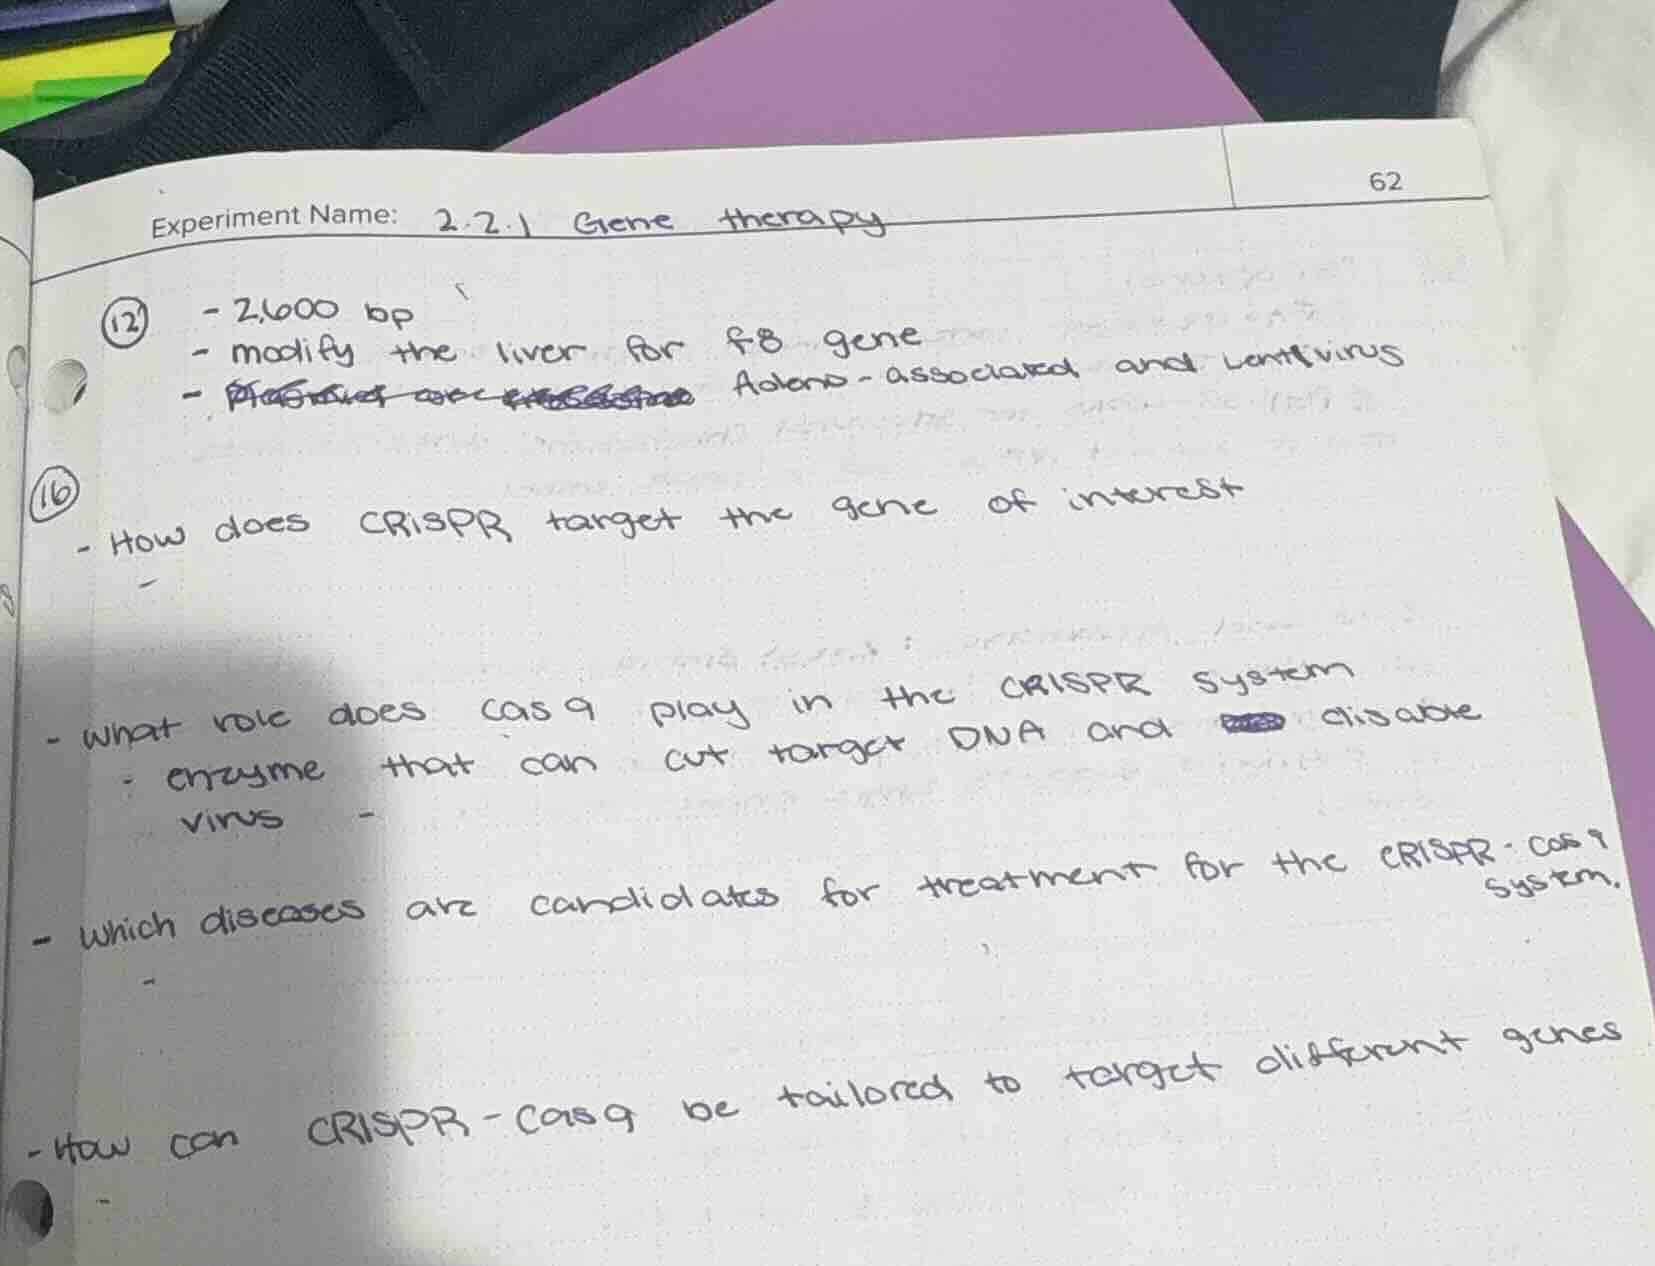 62
Experiment Name: 2.2.1 Gene therapy
12 - 2,600 bp
- modify the liver for f8 gene
- Adeno-associated and Lentivirus
16
- How does CRISPR target the gene of interest
-
- what role does cas9 play in the CRISPR system
: enzyme that can cut target DNA and disable
virus -
- which diseases are candidates for treatment for the CRISPR-cas9
system.
-
- How can CRISPR-Cas9 be tailored to target different genes
-